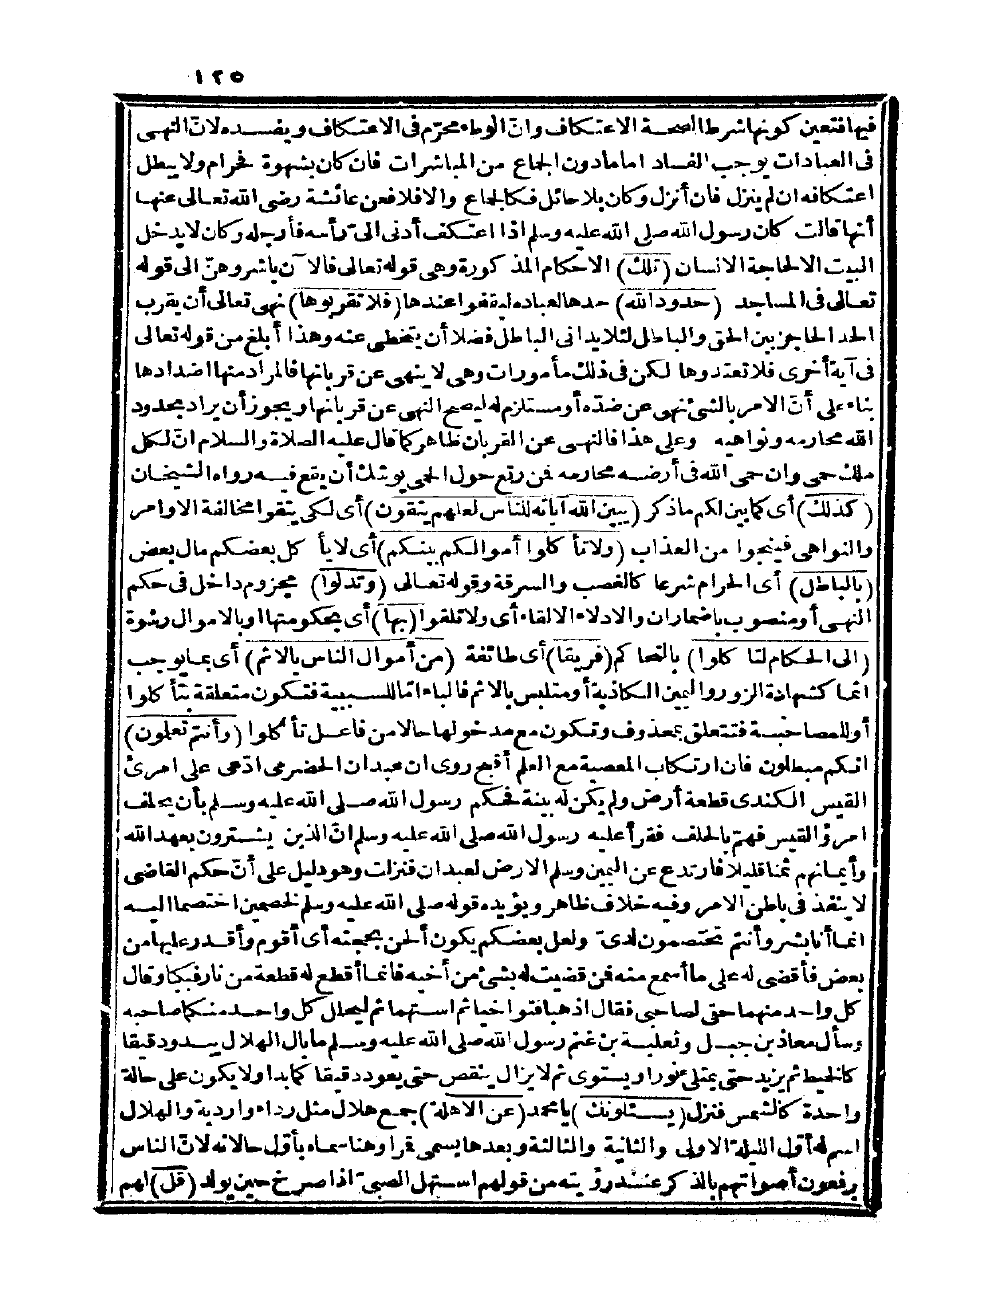 ١٢٥
فيها فتعين كونها شرط الصحة الاعتكاف وانّ الوطء محرّم فى الاعتكاف ويفسده لانّ النهى
فى العبادات يوجب الفساد اما مادون الجماع من المباشرات فان كان بشهوة فحرام ولا يبطل
اعتكافه ان لم ينزل فان أنزل وكان بلا حائل فكالجماع والا فلا فعن عائشة رضى الله تعالى عنها
أنها قالت كان رسول الله صلى الله عليه وسلم اذا اعتكف أدنى الىّ رأسه فأرجله وكان لا يدخل
البيت الا لحاجة الانسان (تلك) الاحكام المذكورة وهى قوله تعالى فالآن باشروهنّ الى قوله
تعالى فى المساجد (حدود الله) حدها لعباده ليقفوا عندها (فلا تقربوها) نهى تعالى أن يقرب
الحد الحاجز بين الحق والباطل لئلا يدانى الباطل فضلا أن يتخطى عنه وهذا أبلغ من قوله تعالى
فى آية أخرى فلا تعتدوها لكن فى ذلك مأمورات وهى لا ينهى عن قربانها فالمراد منها اضدادها
بناء على أنّ الامر بالشئ نهى عن ضدّه أو مستلزم له ليصح النهى عن قربانها ويجوز أن يراد بحدود
الله محارمه ونواهيه وعلى هذا فالنهى عن القربان ظاهر كما قال عليه الصلاة والسلام انّ لكل
ملك حمى وان حمى الله فى أرضه محارمه فمن رتع حول الحمى يوشك أن يقع فيه رواه الشيخان
(كذلك) أى كما بين لكم ما ذكر (يبين الله آياته للناس لعلهم يتقون) أى لكى يتقوا مخالفة الاوامر
والنواهى فينجوا من العذاب (ولا تأكلوا أموالكم بينكم) أى لا يأكل بعضكم مال بعض
(بالباطل) أى الحرام شرعا كالغصب والسرقة وقوله تعالى (وتدلوا) مجزوم داخل فى حكم
النهى أو منصوب باضمار ان والادلاء الالقاء أى ولا تلقوا (بها) أى بحكومتها أو بالاموال رشوة
(الى الحكام لتأكلوا) بالتحاكم (فريقا) أى طائفة (من أموال الناس بالاثم) أى بما يوجب
اثما كشهادة الزور واليمين الكاذبة أو متلبس بالاثم فالباء امّا للسببية فتكون متعلقة بتأكلوا
أو للمصاحبة فتتعلق بمحذوف وتكون مع مدخولها حالا من فاعل تأكلوا (وأنتم تعلمون)
انكم مبطلون فان ارتكاب المعصية مع العلم أقبح روى ان عبدان الحضرمى ادّعى على امرئ
القيس الكندى قطعة أرض ولم يكن له بينة فحكم رسول الله صلى الله عليه وسلم بأن يحلف
امرؤ القيس فهمّ بالحلف فقرأ عليه رسول الله صلى الله عليه وسلم انّ الذين يشترون بعهد الله
وأيمانهم ثمنا قليلا فارتدع عن اليمين وسلم الارض لعبدان فنزلت وهو دليل على أنّ حكم القاضى
لا ينفذ فى باطن الامر وفيه خلاف ظاهر ويؤيده قوله صلى الله عليه وسلم لخصمين اختصما اليه
انما أنا بشر وأنتم تختصمون لدىّ ولعل بعضكم يكون ألحن بحجته أى أقوم وأقدر عليها من
بعض فأقضى له على ما أسمع منه فمن قضيت له بشئ من أخيه فانما أقطع له قطعة من نار فبكيا وقال
كل واحد منهما حق لصاحبى فقال اذهبا فتوا خيا ثم استهما ثم ليحلل كل واحد منكما صاحبه
وسأل معاذ بن جبل وثعلبة بن غنم رسول الله صلى الله عليه وسلم ما بال الهلال يبدو دقيقا
كالخيط ثم يزيد حتى يمتلئ نورا ويستوى ثم لا يزال ينقص حتى يعود دقيقا كما بدا ولا يكون على حالة
واحدة كالشمس فنزل (يسئلونك) يا محمد (عن الاهلة) جمع هلال مثل رداء وأردية والهلال
اسم له أوّل الليلة الاولى والثانية والثالثة وبعدها يسمى قمرا وهنا سماه بأوّل حالاته لانّ الناس
يرفعون أصواتهم بالذكر عند رؤيته من قولهم استهل الصبىّ اذا صرخ حين يولد (قل) لهم